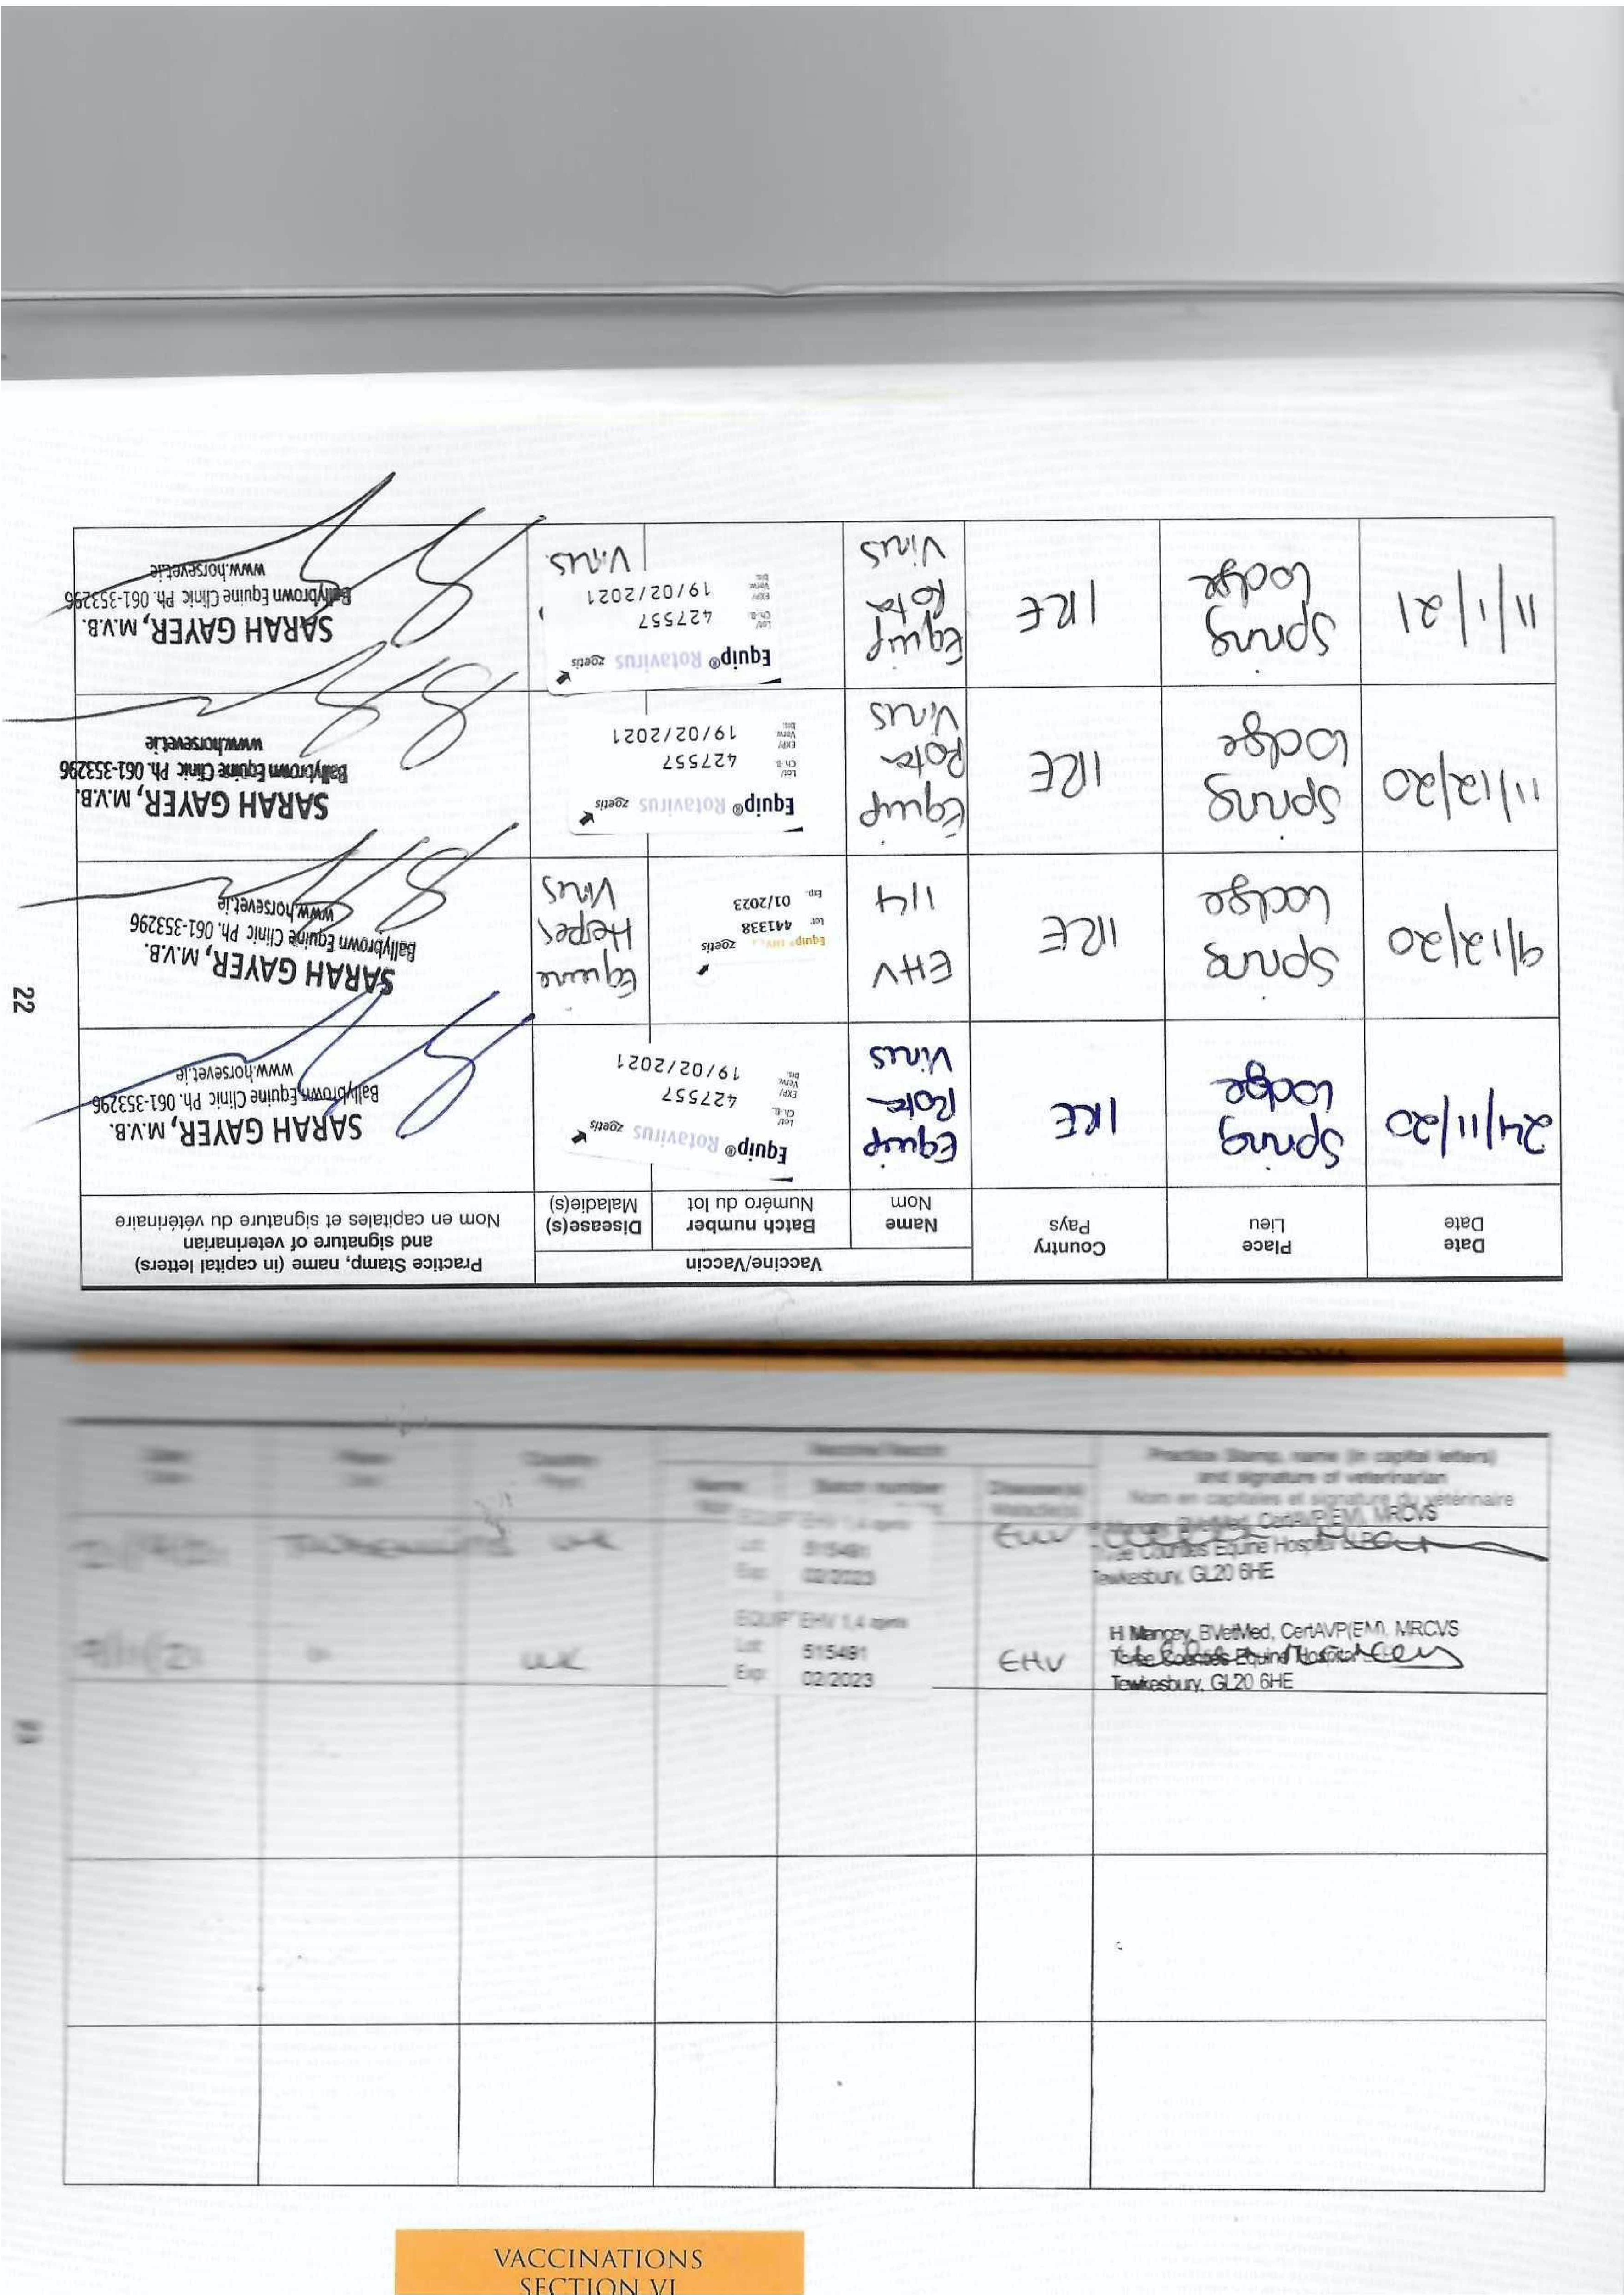 22
Date
Date
Place
Lieu
Country
Pays
Vaccine/Vaccin
Name
Nom
Batch number
Numéro du lot
Disease(s)
Maladie(s)
Practice Stamp, name (in capital letters)
and signature of veterinarian
Nom en capitales et signature du vétérinaire
24/11/20
Spring
Lodge
IRE
Equip
Rota
Virus
Equip® Rotavirus zoetis
Lot/
Ch.-B.
427557
EXP/
Verw.
bis:
19/02/2021
SARAH GAYER, M.V.B.
Ballybrown Equine Clinic Ph. 061-353296
www.horsevet.ie
9/12/20
Spring
Lodge
IRE
EHV
1/4
Equip® EHV 1,4 zoetis
Lot 441338
Exp. 01/2023
Equine
Herpes
Virus
SARAH GAYER, M.V.B.
Ballybrown Equine Clinic Ph. 061-353296
www.horsevet.ie
11/12/20
Spring
Lodge
IRE
Equip
Rota
Virus
Equip® Rotavirus zoetis
Lot/
Ch.-B.
427557
EXP/
Verw.
bis:
19/02/2021
SARAH GAYER, M.V.B.
Ballybrown Equine Clinic Ph. 061-353296
www.horsevet.ie
11/1/21
Spring
Lodge
IRE
Equip
Rota
Virus
Equip® Rotavirus zoetis
Lot/
Ch.-B.
427557
EXP/
Verw.
bis:
19/02/2021
Virus
SARAH GAYER, M.V.B.
Ballybrown Equine Clinic Ph. 061-353296
www.horsevet.ie
Country
Name
Batch number
Disease(s)
Maladie(s)
Practice Stamp, name (in capital letters)
and signature of veterinarian
Nom en capitales et signature du vétérinaire
UK
EQUIP EHV 1,4
Lot 515491
Exp 02/2023
EHV
BVetMed, CertAVP(EM), MRCVS
Three Counties Equine Hospital
Tewkesbury, GL20 6HE
UK
EQUIP EHV 1,4
Lot 515491
Exp 02/2023
EHV
H Mancey, BVetMed, CertAVP(EM), MRCVS
Three Counties Equine Hospital
Tewkesbury, GL20 6HE
VACCINATIONS
SECTION VI